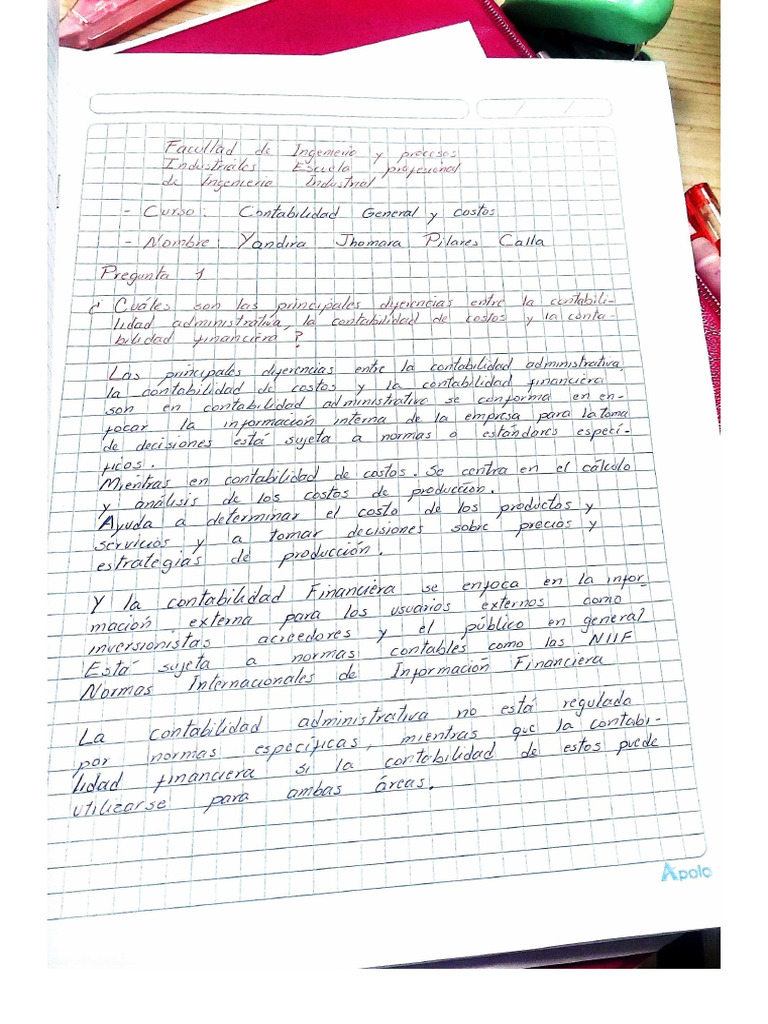 Facultad de Ingenieria y procesos
Industriales Escuela profesional
de Ingenieria Industrial
- Curso: Contabilidad General y costos
- Nombre: Yandira Jhomara Pilares Calla
Pregunta 1
¿Cuáles son las principales diferencias entre la contabili-
lidad administrativa, la contabilidad de costos y la conta-
bilidad financiera?
Las principales diferencias entre la contabilidad administrativa,
la contabilidad de costos y la contabilidad financiera
son en contabilidad administrativa se conforma en en-
focar la información interna de la empresa para la toma
de decisiones está sujeta a normas o estándares especí-
ficos.
Mientras en contabilidad de costos. Se centra en el cálculo
y análisis de los costos de producción.
Ayuda a determinar el costo de los productos y
servicios y a tomar decisiones sobre precios y
estrategias de producción.
Y la contabilidad Financiera se enfoca en la infor-
mación externa para los usuarios externos como
inversionistas acreedores y el público en general
Está sujeta a normas contables como las NIIF
Normas Internacionales de Información Financiera
La contabilidad administrativa no está regulada
por normas específicas, mientras que la contabi-
lidad financiera si la contabilidad de estos puede
utilizarse para ambas áreas.
Apolo